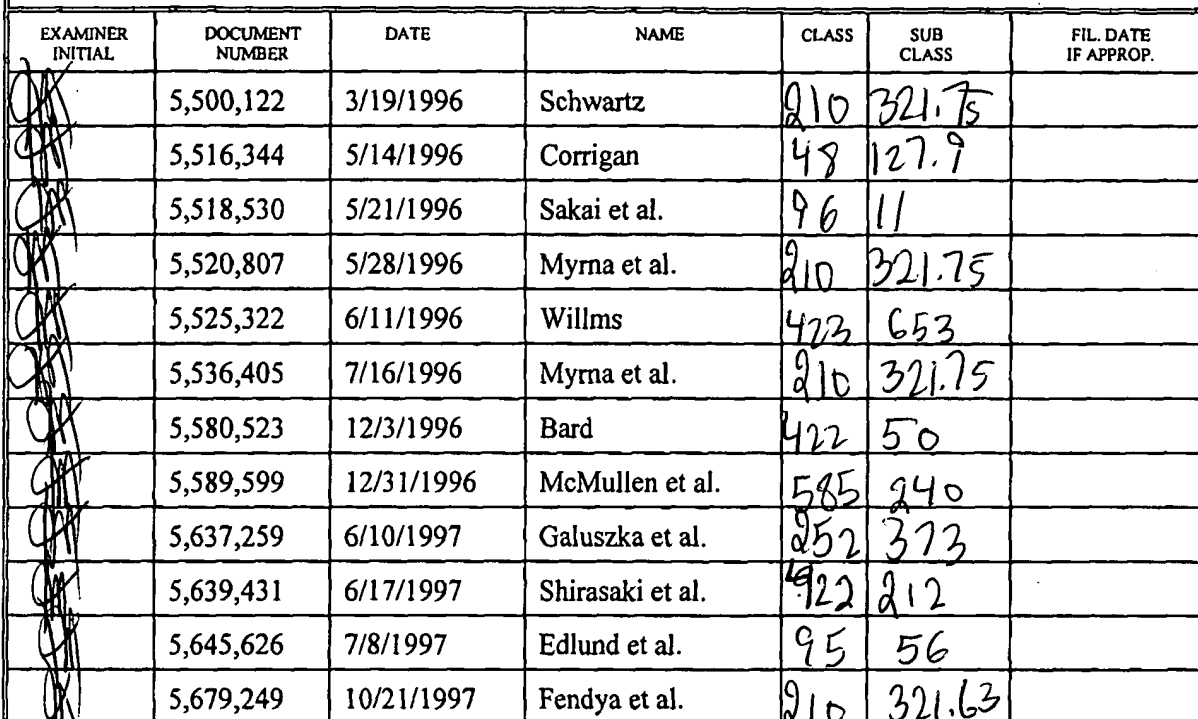 EXAMINER INITIAL DOCUMENT NUMBER DATE NAME CLASS SUB CLASS FIL. DATE IF APPROP.
5,500,122 3/19/1996 Schwartz 210 321.75
5,516,344 5/14/1996 Corrigan 48 127.9
5,518,530 5/21/1996 Sakai et al. 96 11
5,520,807 5/28/1996 Myrna et al. 210 321.75
5,525,322 6/11/1996 Willms 423 653
5,536,405 7/16/1996 Myrna et al. 210 321.75
5,580,523 12/3/1996 Bard 422 50
5,589,599 12/31/1996 McMullen et al. 585 240
5,637,259 6/10/1997 Galuszka et al. 252 373
5,639,431 6/17/1997 Shirasaki et al. 422 212
5,645,626 7/8/1997 Edlund et al. 95 56
5,679,249 10/21/1997 Fendya et al. 210 321.63